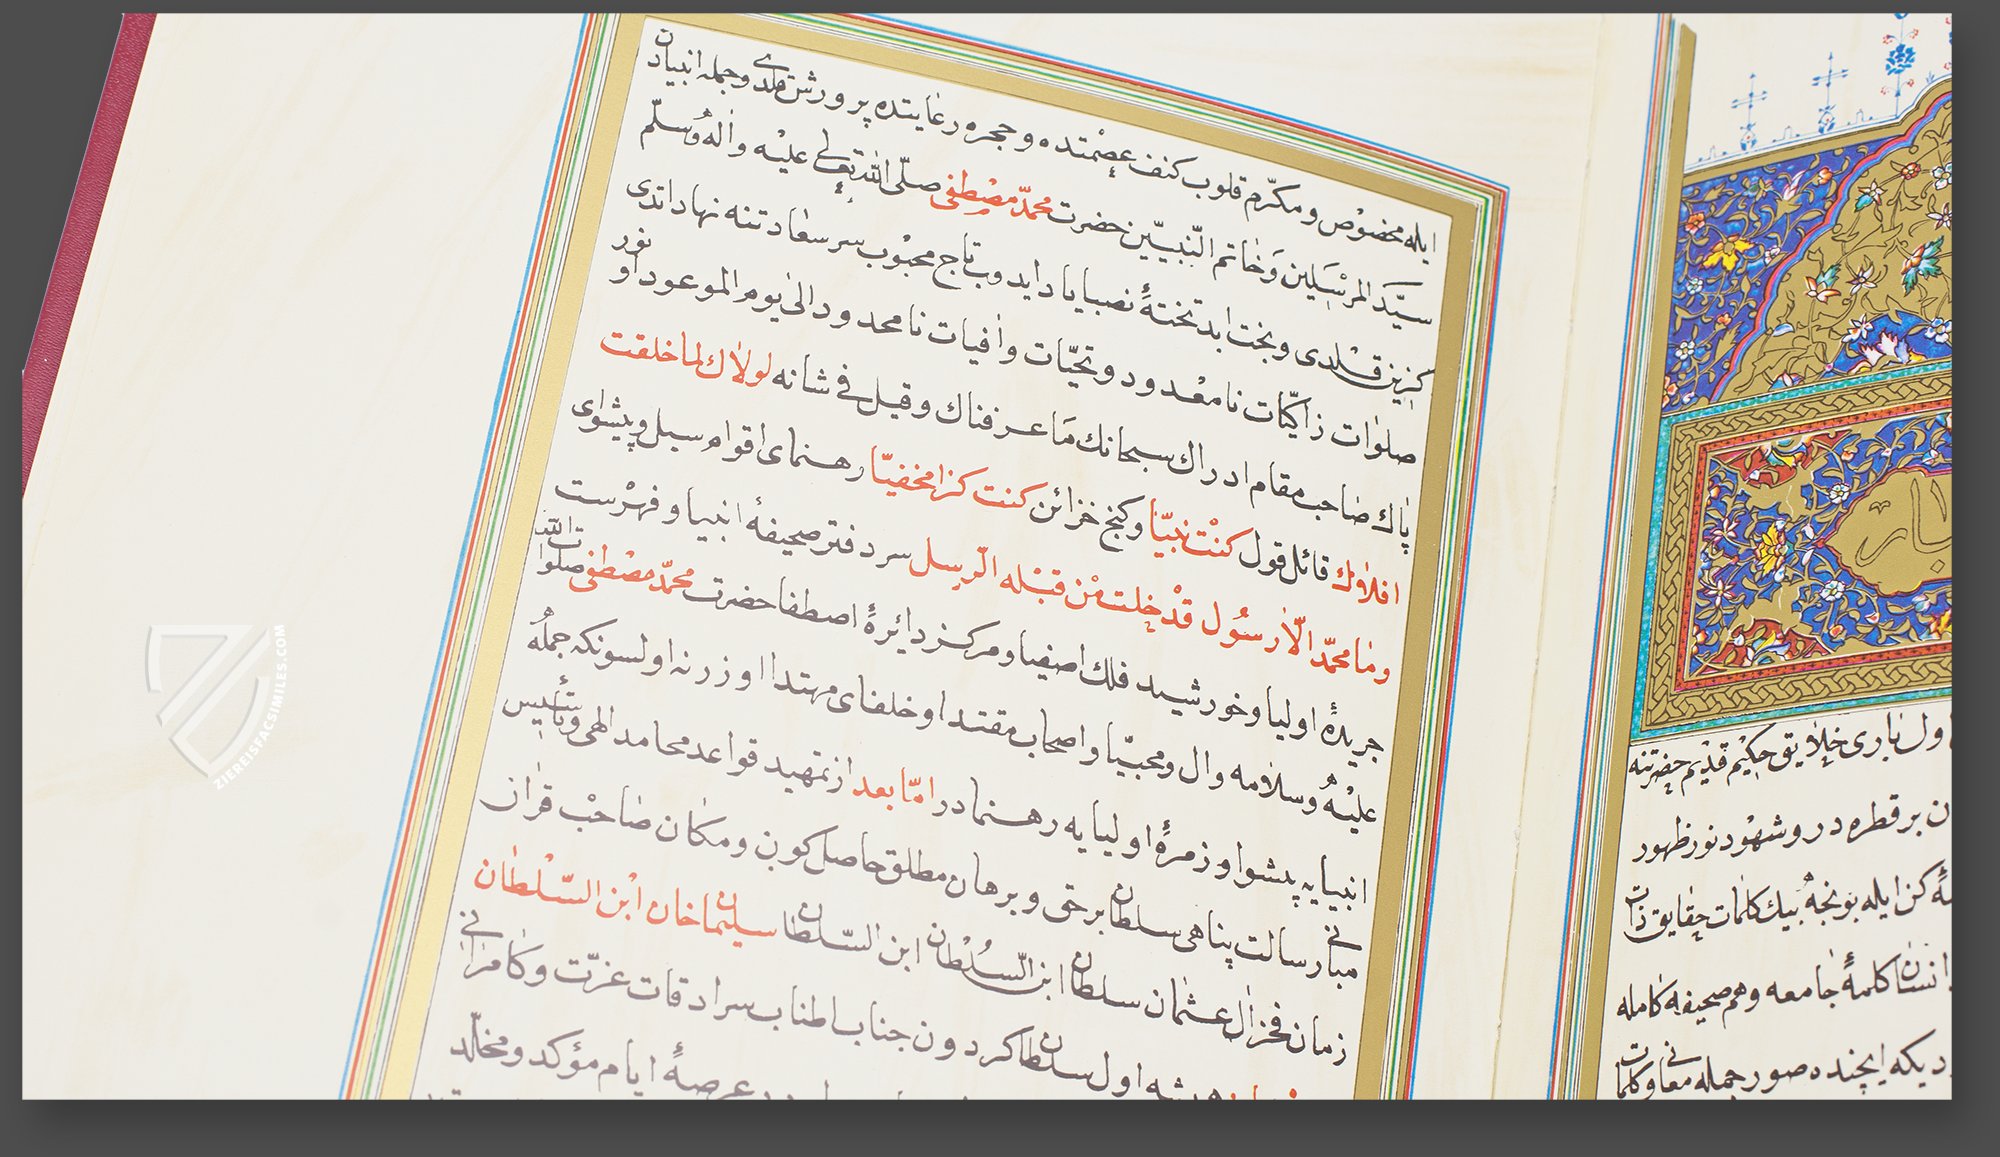 ايله مخصوص و مكرّم قلوب كنف عصمتده و حجره رعايتده پرورش قلدى و جمله انبيادن
سيّد المرسلين و خاتم النّبيّين حضرت محمّد مصطفى صلّى الله تعالى عليه واله وسلّم
كزين قلدى و بخت ابد تختهٔ نصيبا ياد ايدوب تاج محبوب سر سعادتنه نهاد اتدى
صلوات زاكيّات نامعدود و تحيّات وافيات نامحدود الى يوم الموعود او نور
پاك صاحب مقام ادراك سبحانك ما عرفناك و قيل فى شانه لولاك لما خلقت
افلاك قائل قول كنت نبيّا و كنج خزائن كنت كنزا مخفيّا رهنماى اقوام سبل و پيشواى
وما محمّد الّا رسول قد خلت من قبله الرسل سر دفتر صحيفهٔ انبيا و فهرست
جريدهٔ اوليا و خورشيد فلك اصفيا و مركز دائرهٔ اصطفا حضرت محمّد مصطفى صلوات الله
عليه وسلامه وال و محبّيا و اصحاب مقتدا و خلفاى مهتدا اوزرنه اولسونكه جمله
انبيايه پيشوا و زمرهٔ اوليايه رهنمادر امّا بعد از تمهيد قواعد محامد الهى و تأسيس
مبانى رسالت پناهى سلطان برحق و برهان مطلق حاصل كون و مكان صاحب قران
زمان فخر ال عثمان سلطان ابن السلطان ابن السّلطان سليمان خان ابن السّلطان
اول سلطان كردون جناب اطناب سرادقات عزّت و كامرانى
عرصهٔ ايام مؤكد و مخلّد
بار
اول بارى خلايق حكيم قديم حضرتنه
بر قطره در و شهود نور ظهور
كن ايله بو نجه بيك كلمات حقايق ذات
انسان كلمهٔ جامعه و هم صحيفه كامله
ديكه ايچنده صور جمله معانى و كلمات
ZIEREISFACSIMILES.COM